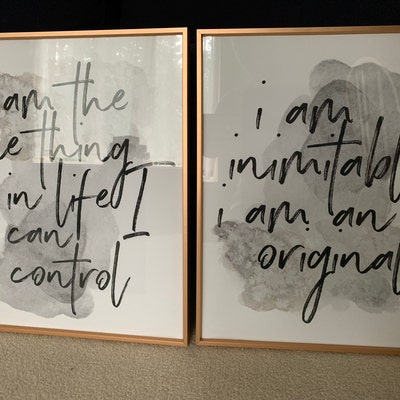 am the
e thing
in life I
can
control
i am
inimitabl
i am an
original